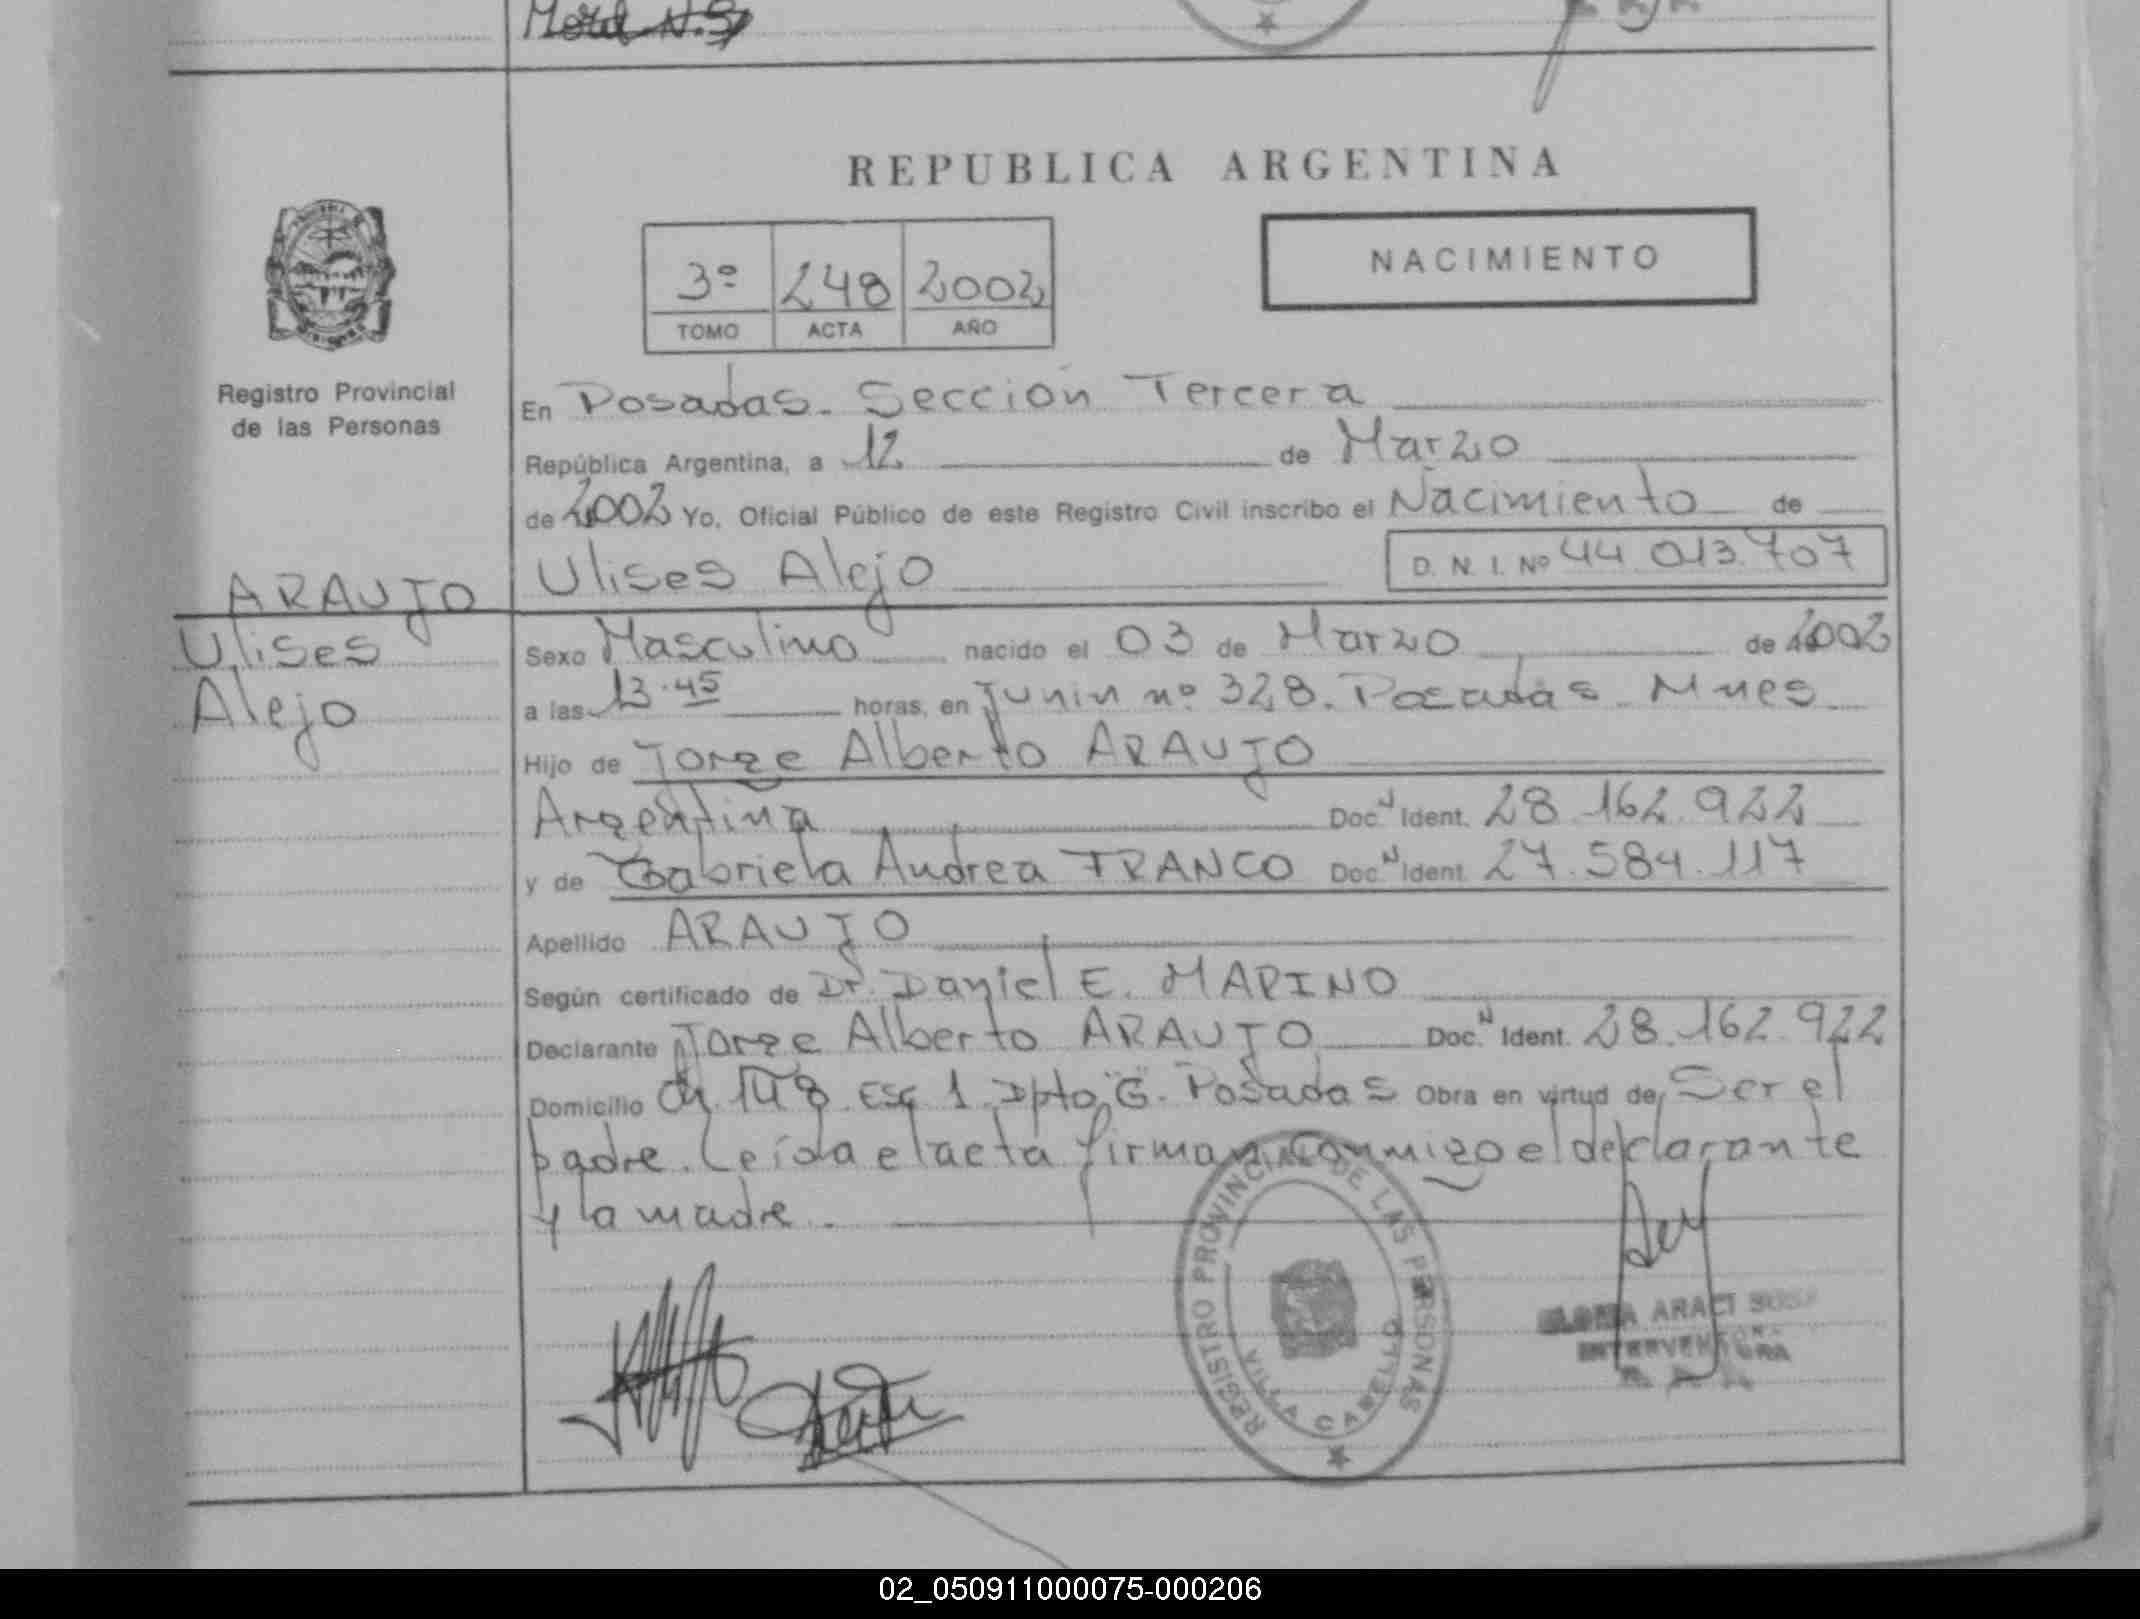 REPUBLICA ARGENTINA
NACIMIENTO
3º 248 2002
TOMO ACTA AÑO
Registro Provincial
de las Personas
En Posadas. Sección Tercera
República Argentina, a 12 de Marzo
de 2002 Yo, Oficial Público de este Registro Civil inscribo el Nacimiento de
ARAUJO
Ulises
Alejo
Ulises Alejo D. N. I. Nº 44.013.707
Sexo Masculino nacido el 03 de Marzo de 2002
a las 13.45 horas, en Junin nº 328. Posadas Mnes
Hijo de Jorge Alberto ARAUJO
Argentina Doc. Ident. 28.162.922
y de Gabriela Andrea FRANCO Doc. Ident. 27.584.117
Apellido ARAUJO
Según certificado de Dr. Daniel E. MARINO
Declarante Jorge Alberto ARAUJO Doc. Ident. 28.162.922
Domicilio Ch. 148 Esc 1 Dpto "G". Posadas Obra en virtud de Ser el
padre. Leída el acta firman conmigo el declarante
y la madre.
REGISTRO PROVINCIAL DE LAS PERSONAS
VILLA CABELLO
ARACI SOSA
INTERVENTORA
02_050911000075-000206